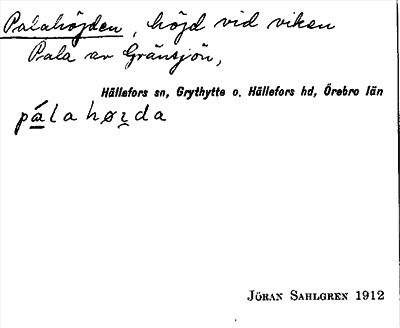 Palahöjden, höjd vid viken
Pala av Gränsjön,
Hällefors sn, Grythytte o. Hällefors hd, Örebro län
pálahøɪ̯da
JÖRAN SAHLGREN 1912